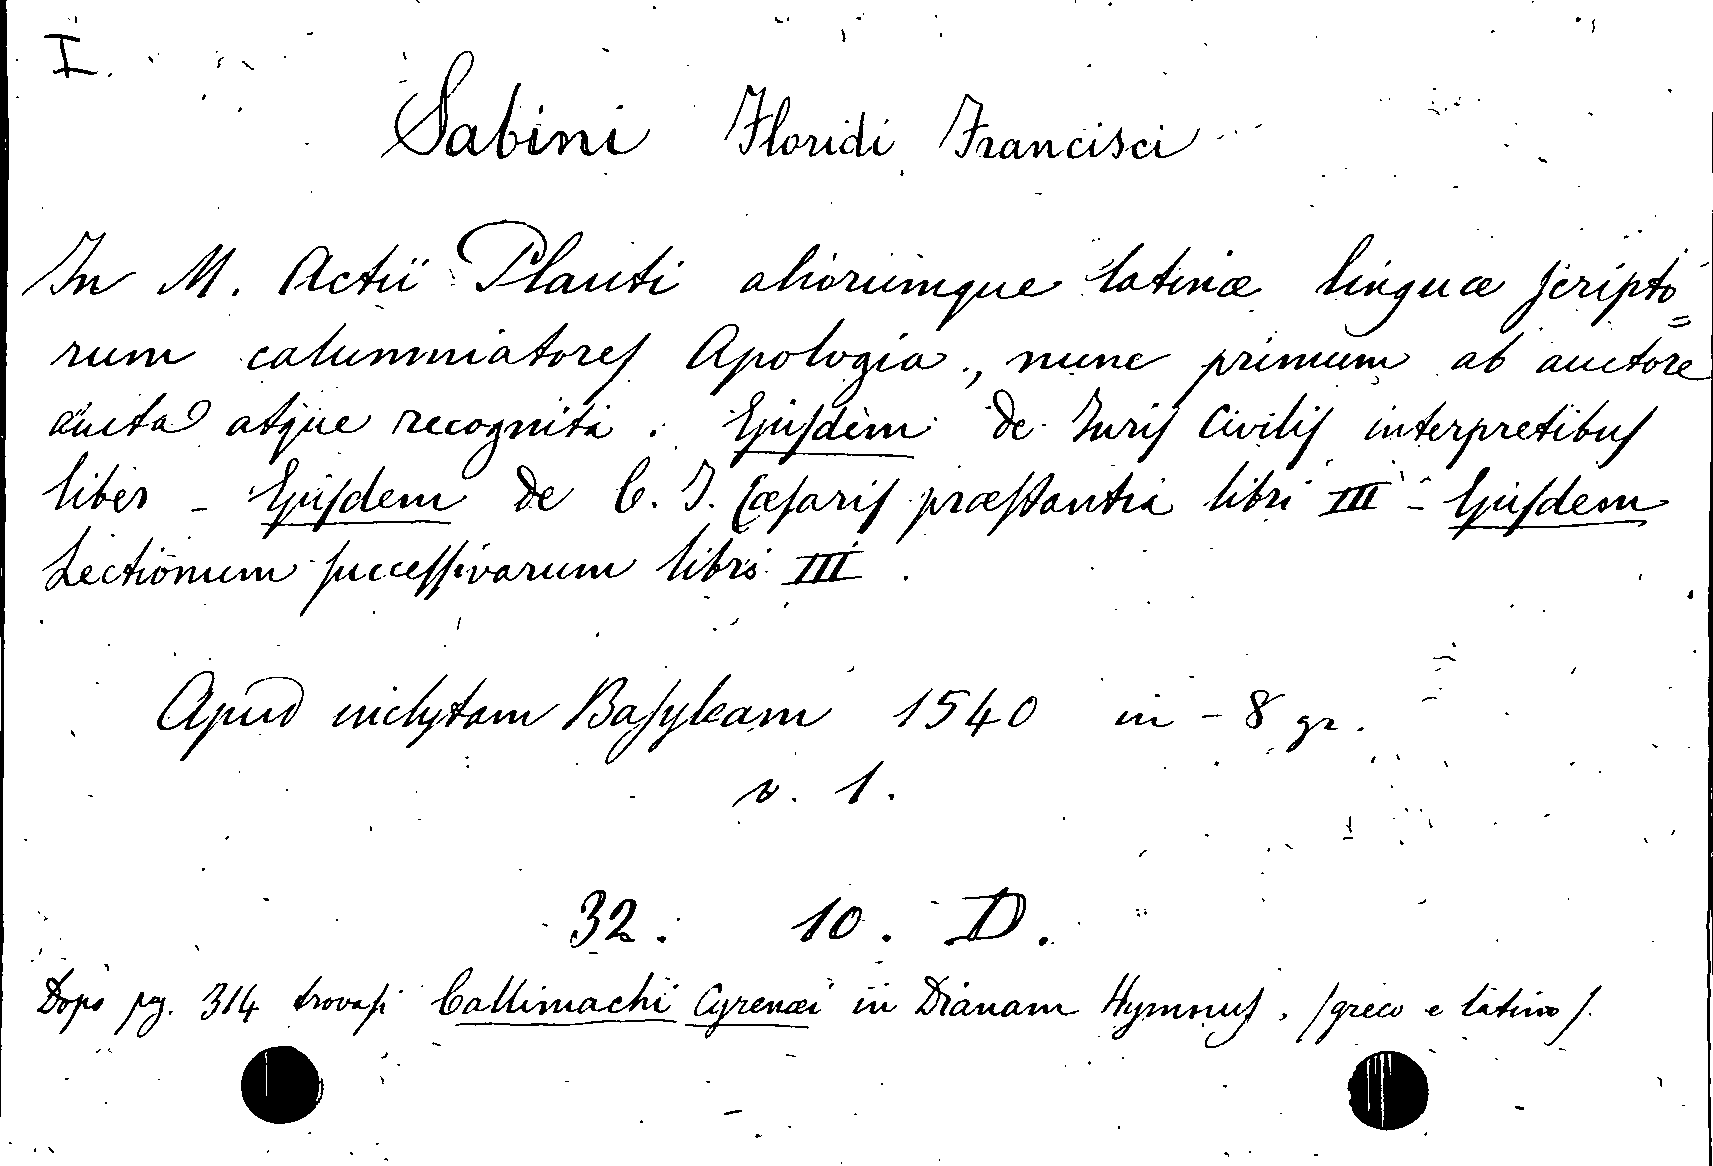 I.
Sabini Floridi Francisci
In M. Actii Plauti aliorumque latinæ linguæ scripto=
rum calumniatores Apologia, nunc primum ab auctore
aucta atque recognita. Ejusdem de Juris Civilis interpretibus
liber - Ejusdem de C. J. Cæsaris præstantia libri III - Ejusdem
Lectionum successivarum libri III.
Apud inclytam Basyleam 1540 in - 8 gr.
v. 1.
32. 10. D.
Dopo pag. 314 trovasi Callimachi Cyrenæi in Dianam Hymnus. /greco e latino/.